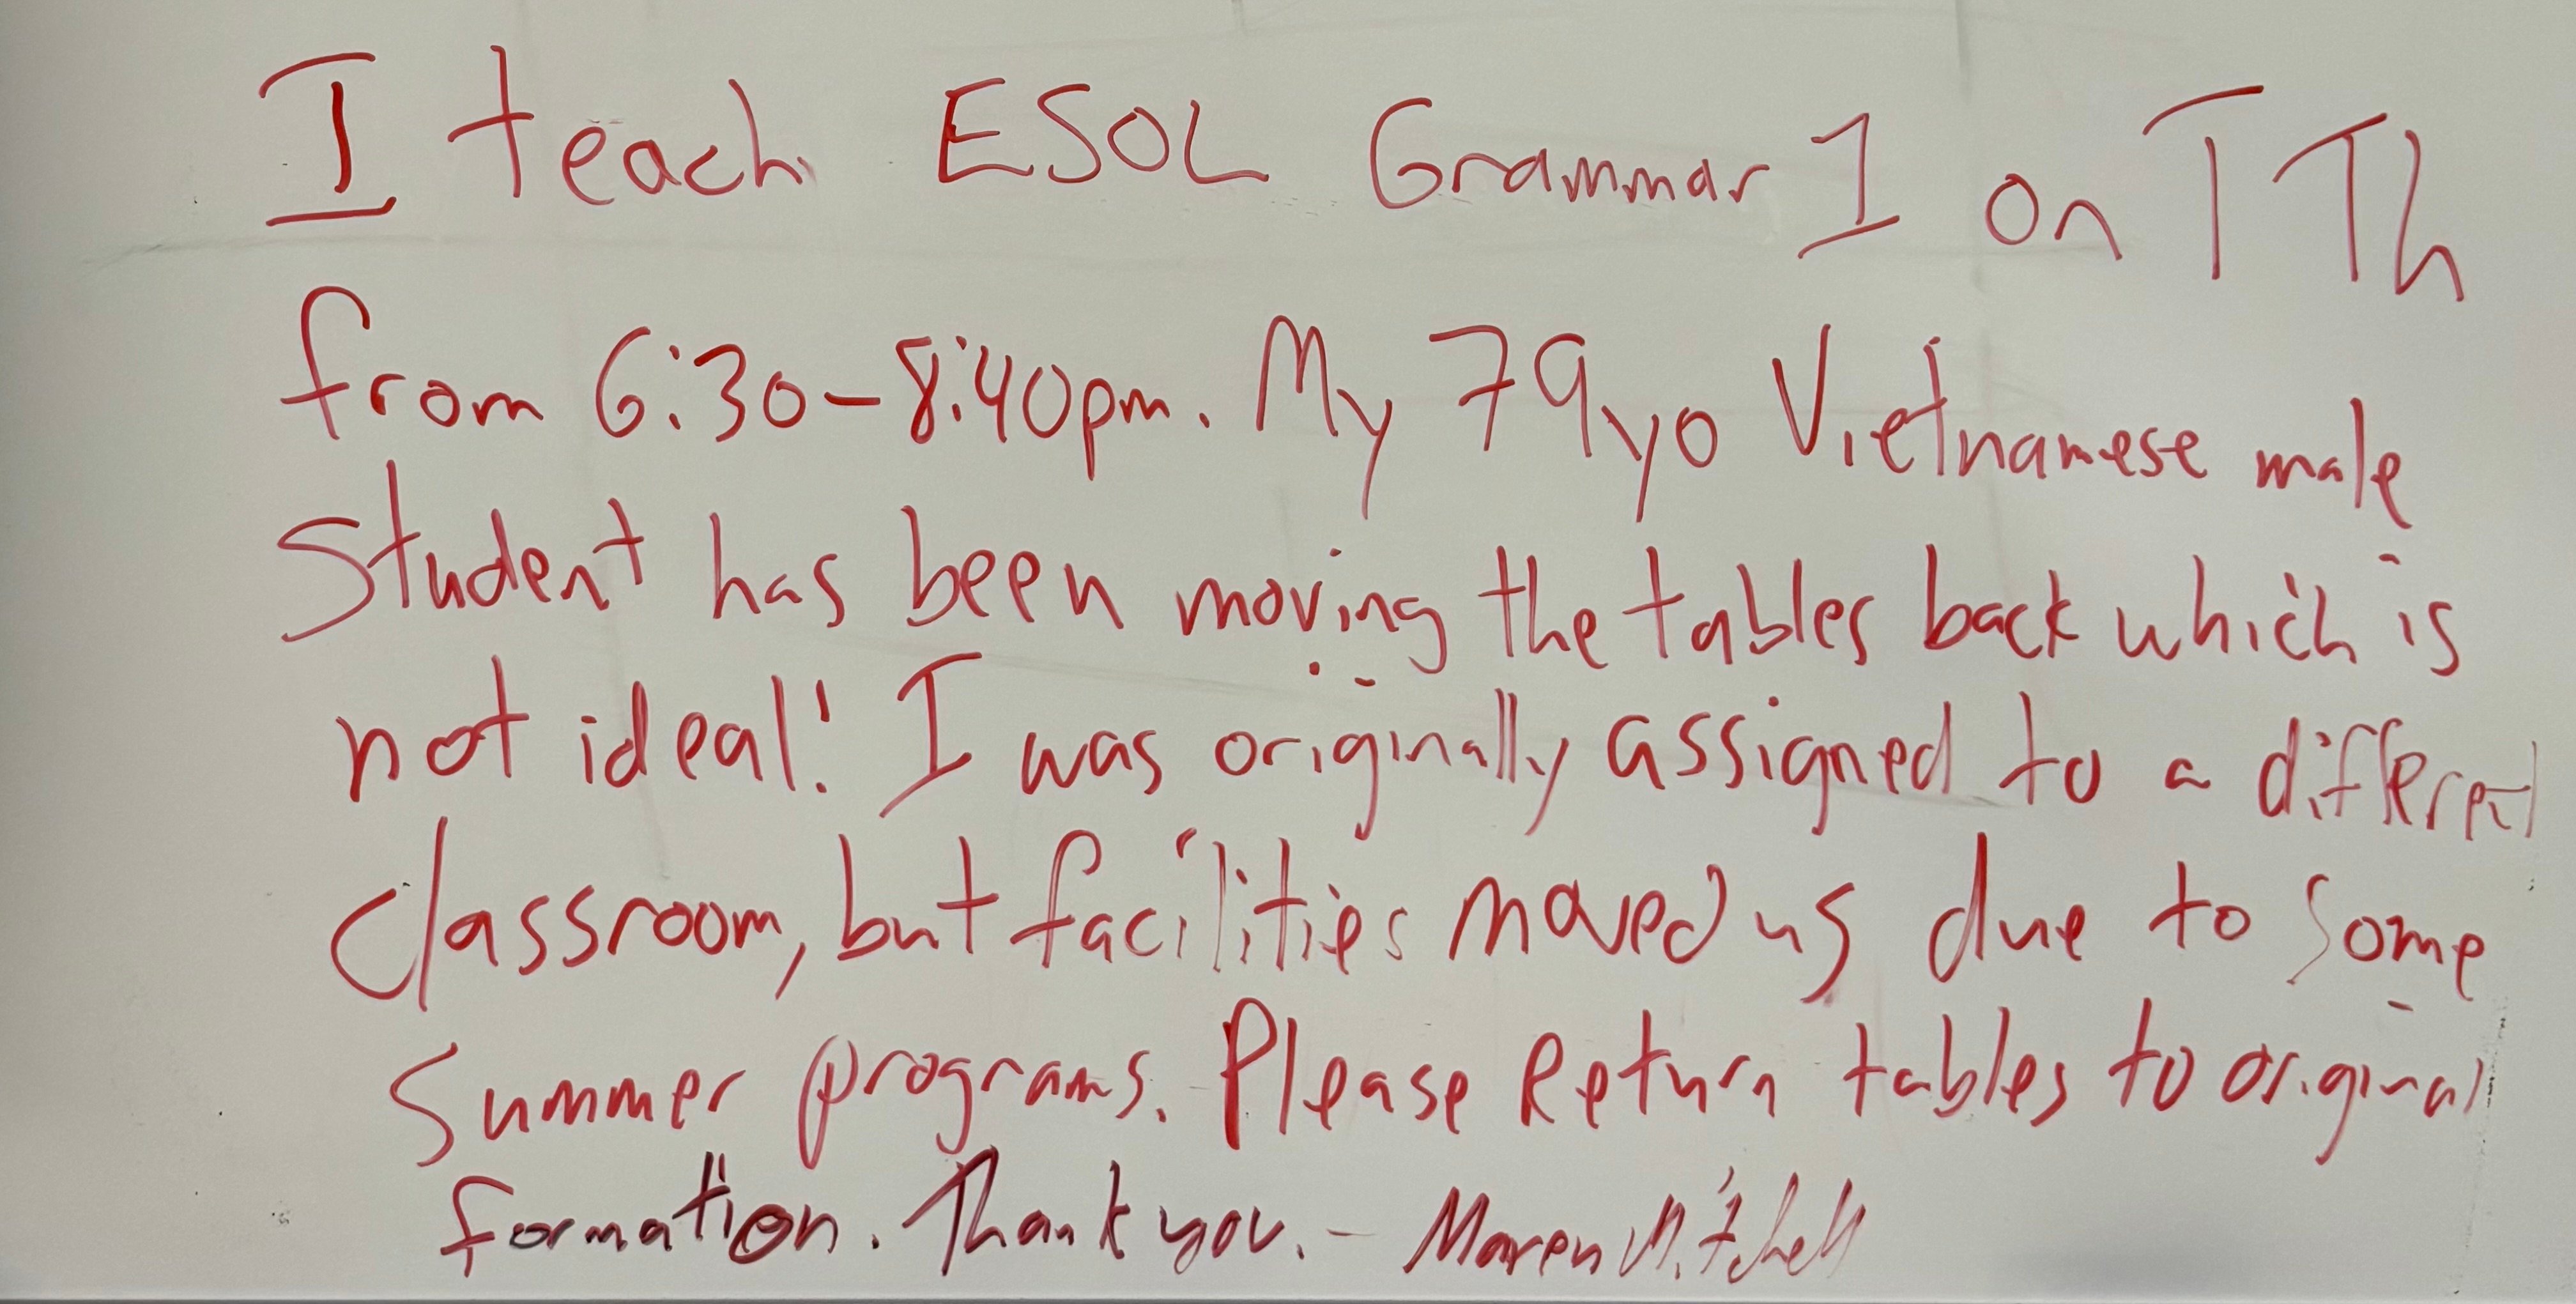 I teach ESOL Grammar 1 on T Th
from 6:30-8:40pm. My 79yo Vietnamese male
Student has been moving the tables back which is
not ideal! I was originally assigned to a different
classroom, but facilities moved us due to some
summer programs. Please Return tables to original
formation. Thank you. - Maren Mitchell